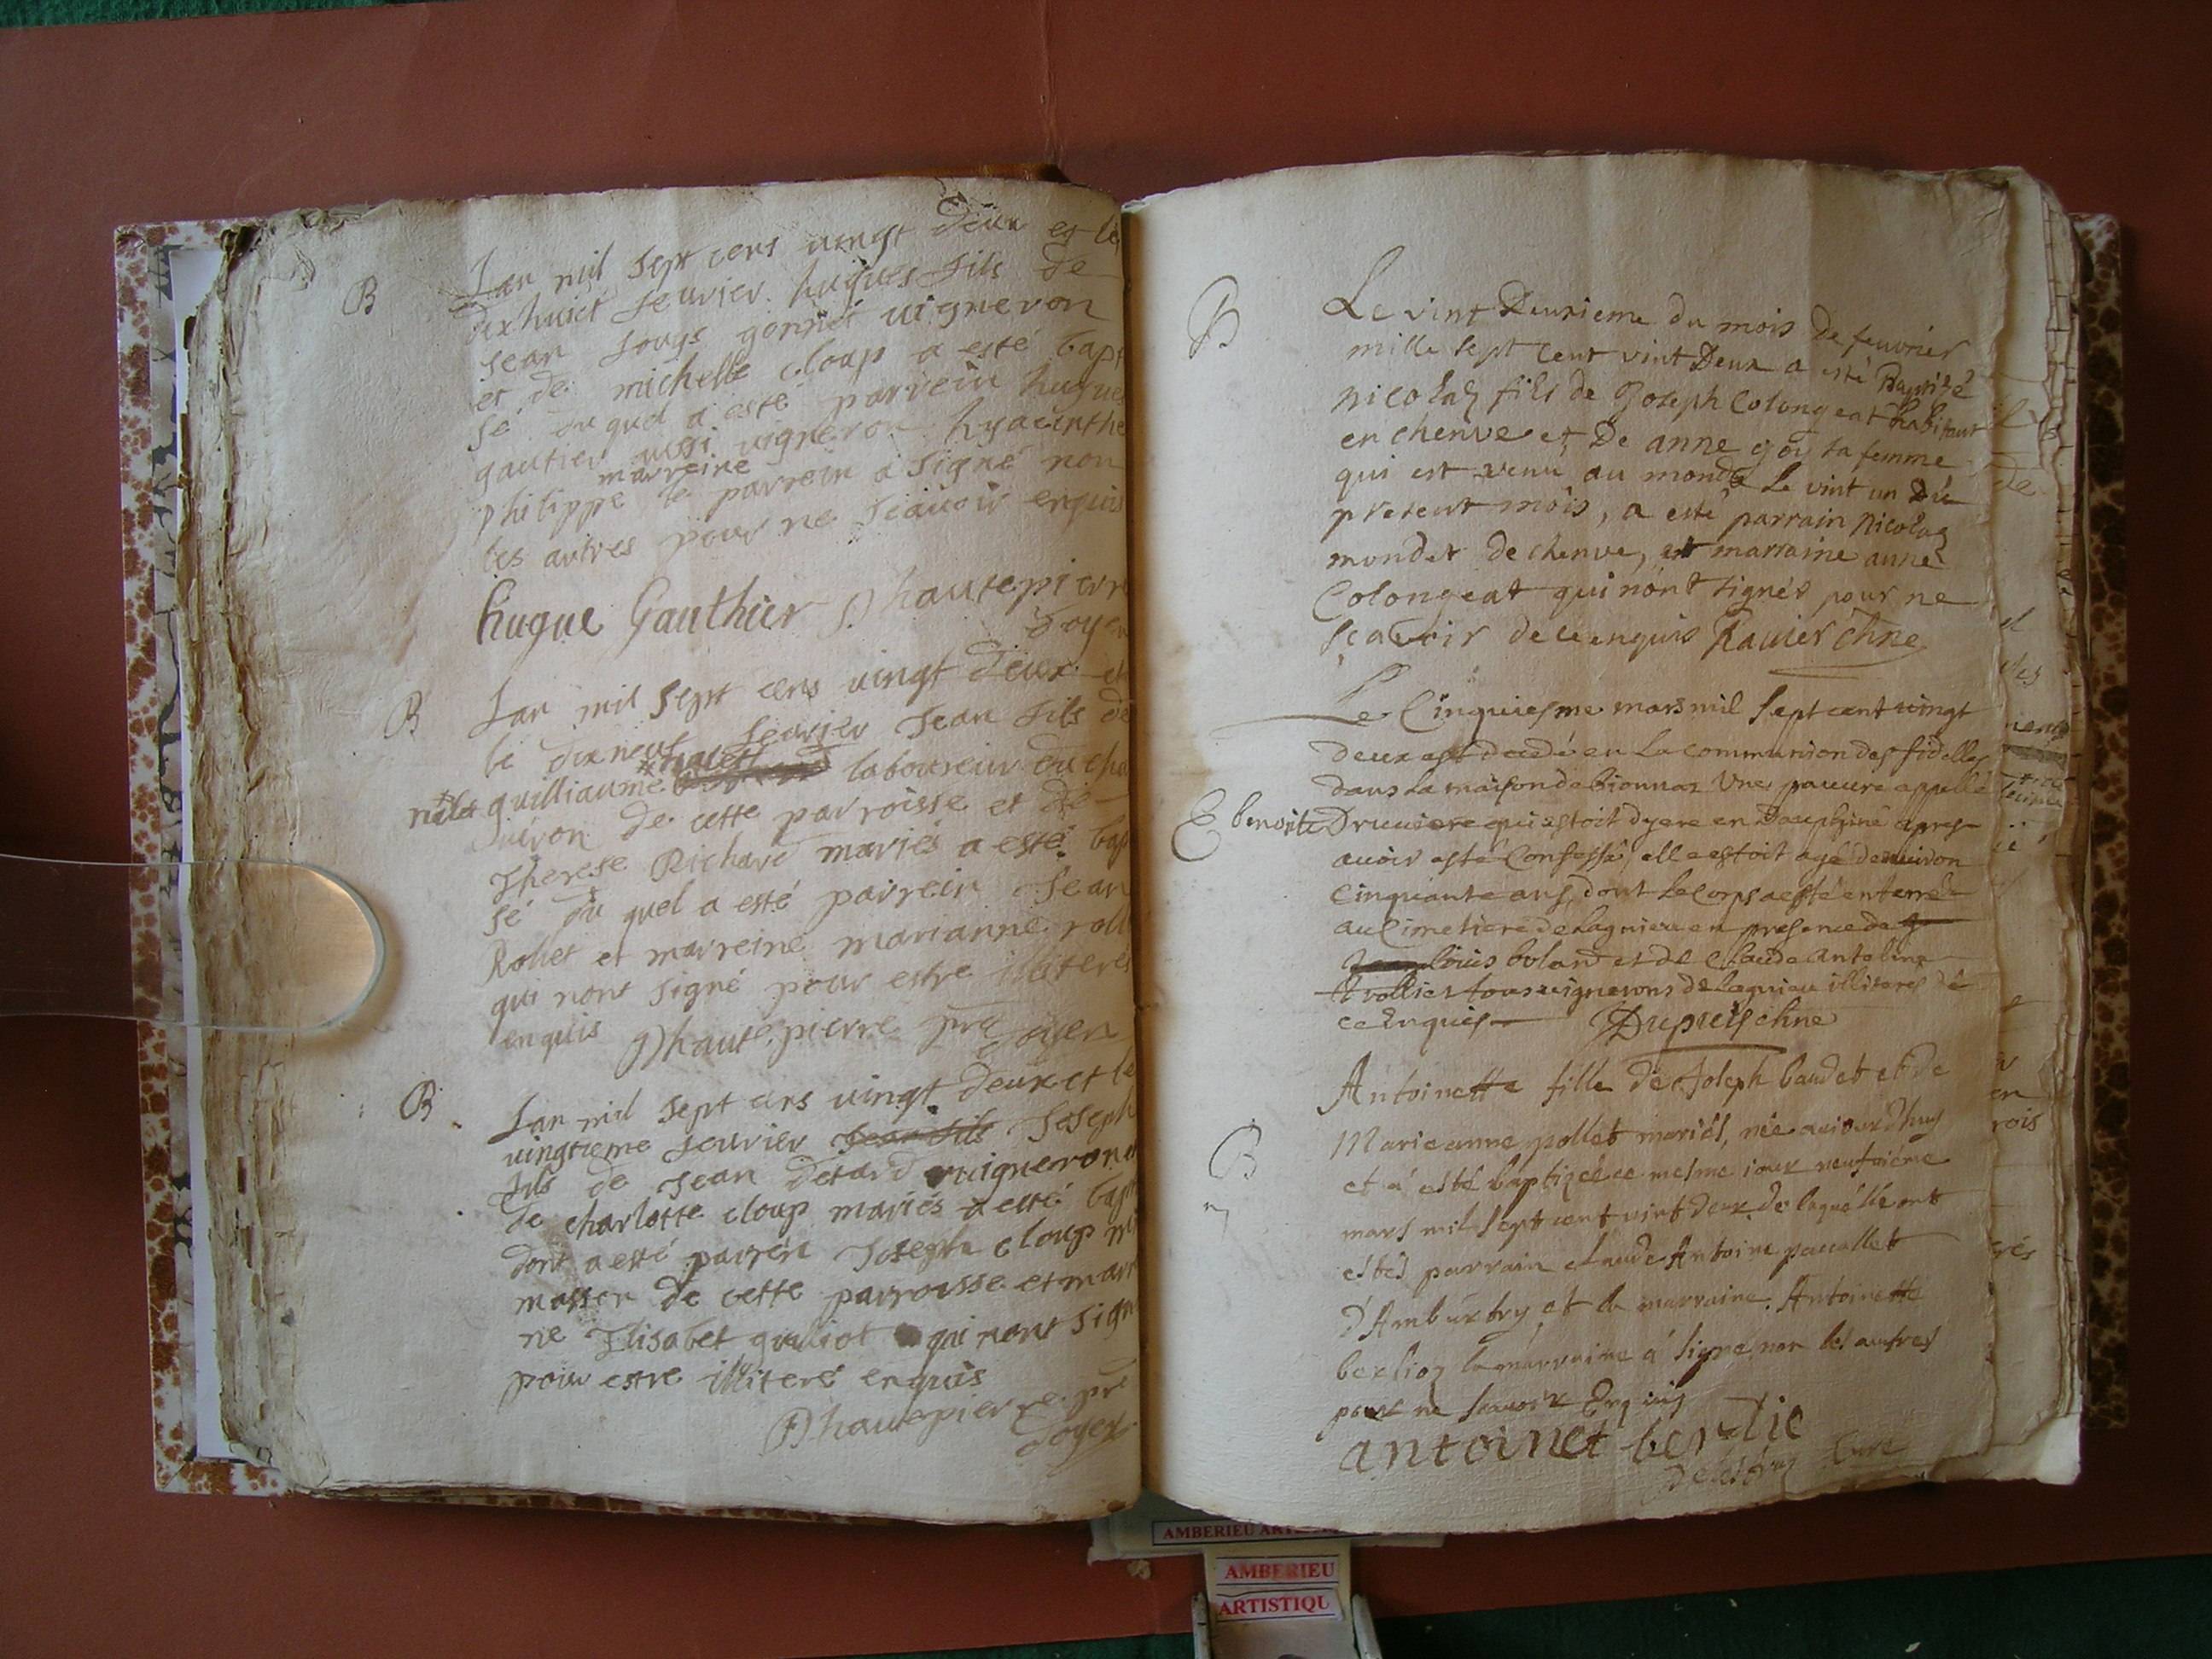 B
Lan mil sept cens vingt deux et le
dixhuict feurier hugues fils de
Jean Louys gonnet vigneron
et de michelle cloup a esté bapt
sé du quel a esté parrein hugues
gautier aussi vigneron hyacinthe
marreine
philippe le parrein a signé non
les autres pour ne scauoir enquis
hugue Gauthier D hautepierre
doyen
B
Lan mil sept cens vingt deux et
le dixneuf feurier Jean fils de
guilliaume laboureur du cha
de cette parroisse et de
Therese Richard mariés a esté bap
sé du quel a esté parrein Jean
Rollet et marreine marianne roll
qui nont signé pour estre illiterés
enquis D hautepierre pre doyen
B
Lan mil sept cens vingt deux et le
vingtieme feurier Jean fils Joseph
fils de Jean detard vigneron et
de charlotte cloup mariés a esté bapti
dont a esté parrein Joseph cloup
masson de cette parroisse et marr
ne Elisabet qui nont signé
pour estre illiteré enquis
D hautepierre pre
doyen
B
Le vint Deuxieme du mois de feuvrier
mille sept cent vint Deux a esté Baptizé
nicolas fils de Joseph Colongeat habitant
en chenve et De anne goy sa femme
qui est venu au monde Le vint un Du
present mois, a esté parrain nicolas
mondet de chenve, et marraine anne
Colongeat qui n'ont signés pour ne
scavoir de ce enquis Ravier chne
Le Cinquiesme mars mil sept cent vingt
deux est decedé en la communion des fidelles
dans la maison de bionnaz Une pauure appellé
E benoite Druuiere qui estoit dyere en Dauphiné apres
auoir esté Confessé elle estoit agé denuiron
Cinquante ans, dont le Corps a esté enterré
au Cimetiere de Lagnieu en presence de
louis boland et de Claude Anteline
trollier tous vignerons de Lagnieu illiteres de
ce Enquis Dupuis chne
Antoinette fille de Joseph baudet et de
B
Marieanne pollet mariés, née aujourdhuy
et á esté baptizée ce mesme jour neufvième
mars mil sept cent vint deux de laquelle ont
estés parrain claude Antoine paccallet
D'Ambutry et la marraine Antoinette
berlioz la marraine á signé non les autres
pour ne scauoir Enquis
antoinet berlie
Curé
AMBERIEU
AMBERIEU
ARTISTIQU